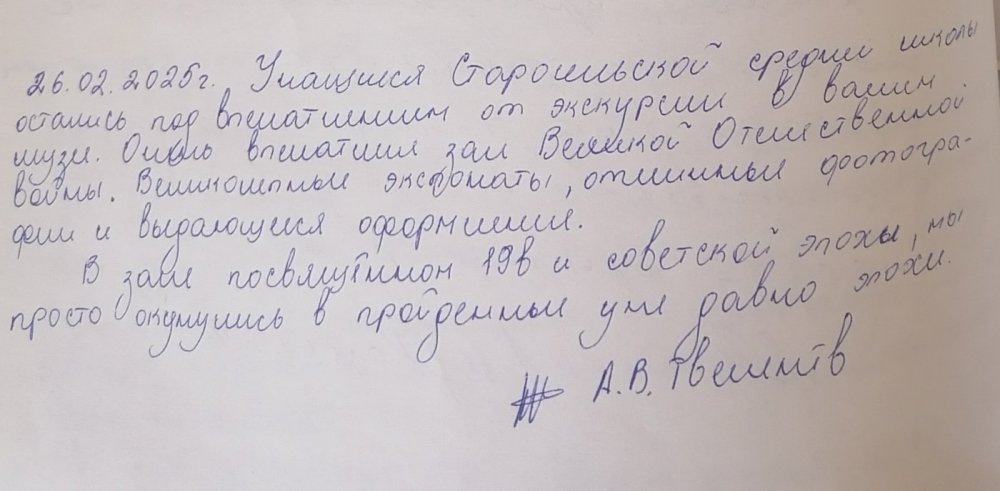 26.02.2025г. Учащиеся Старосельской средней школы
остались под впечатлением от экскурсии в вашем
музее. Очень впечатлил зал Великой Отечественной
войны. Великолепные экспонаты, отличные фотогра-
фии и выдающееся оформление.
В зале посвящённом 19в и советской эпохи, мы
просто окунулись в пройденные уже давно эпохи.
А.В.